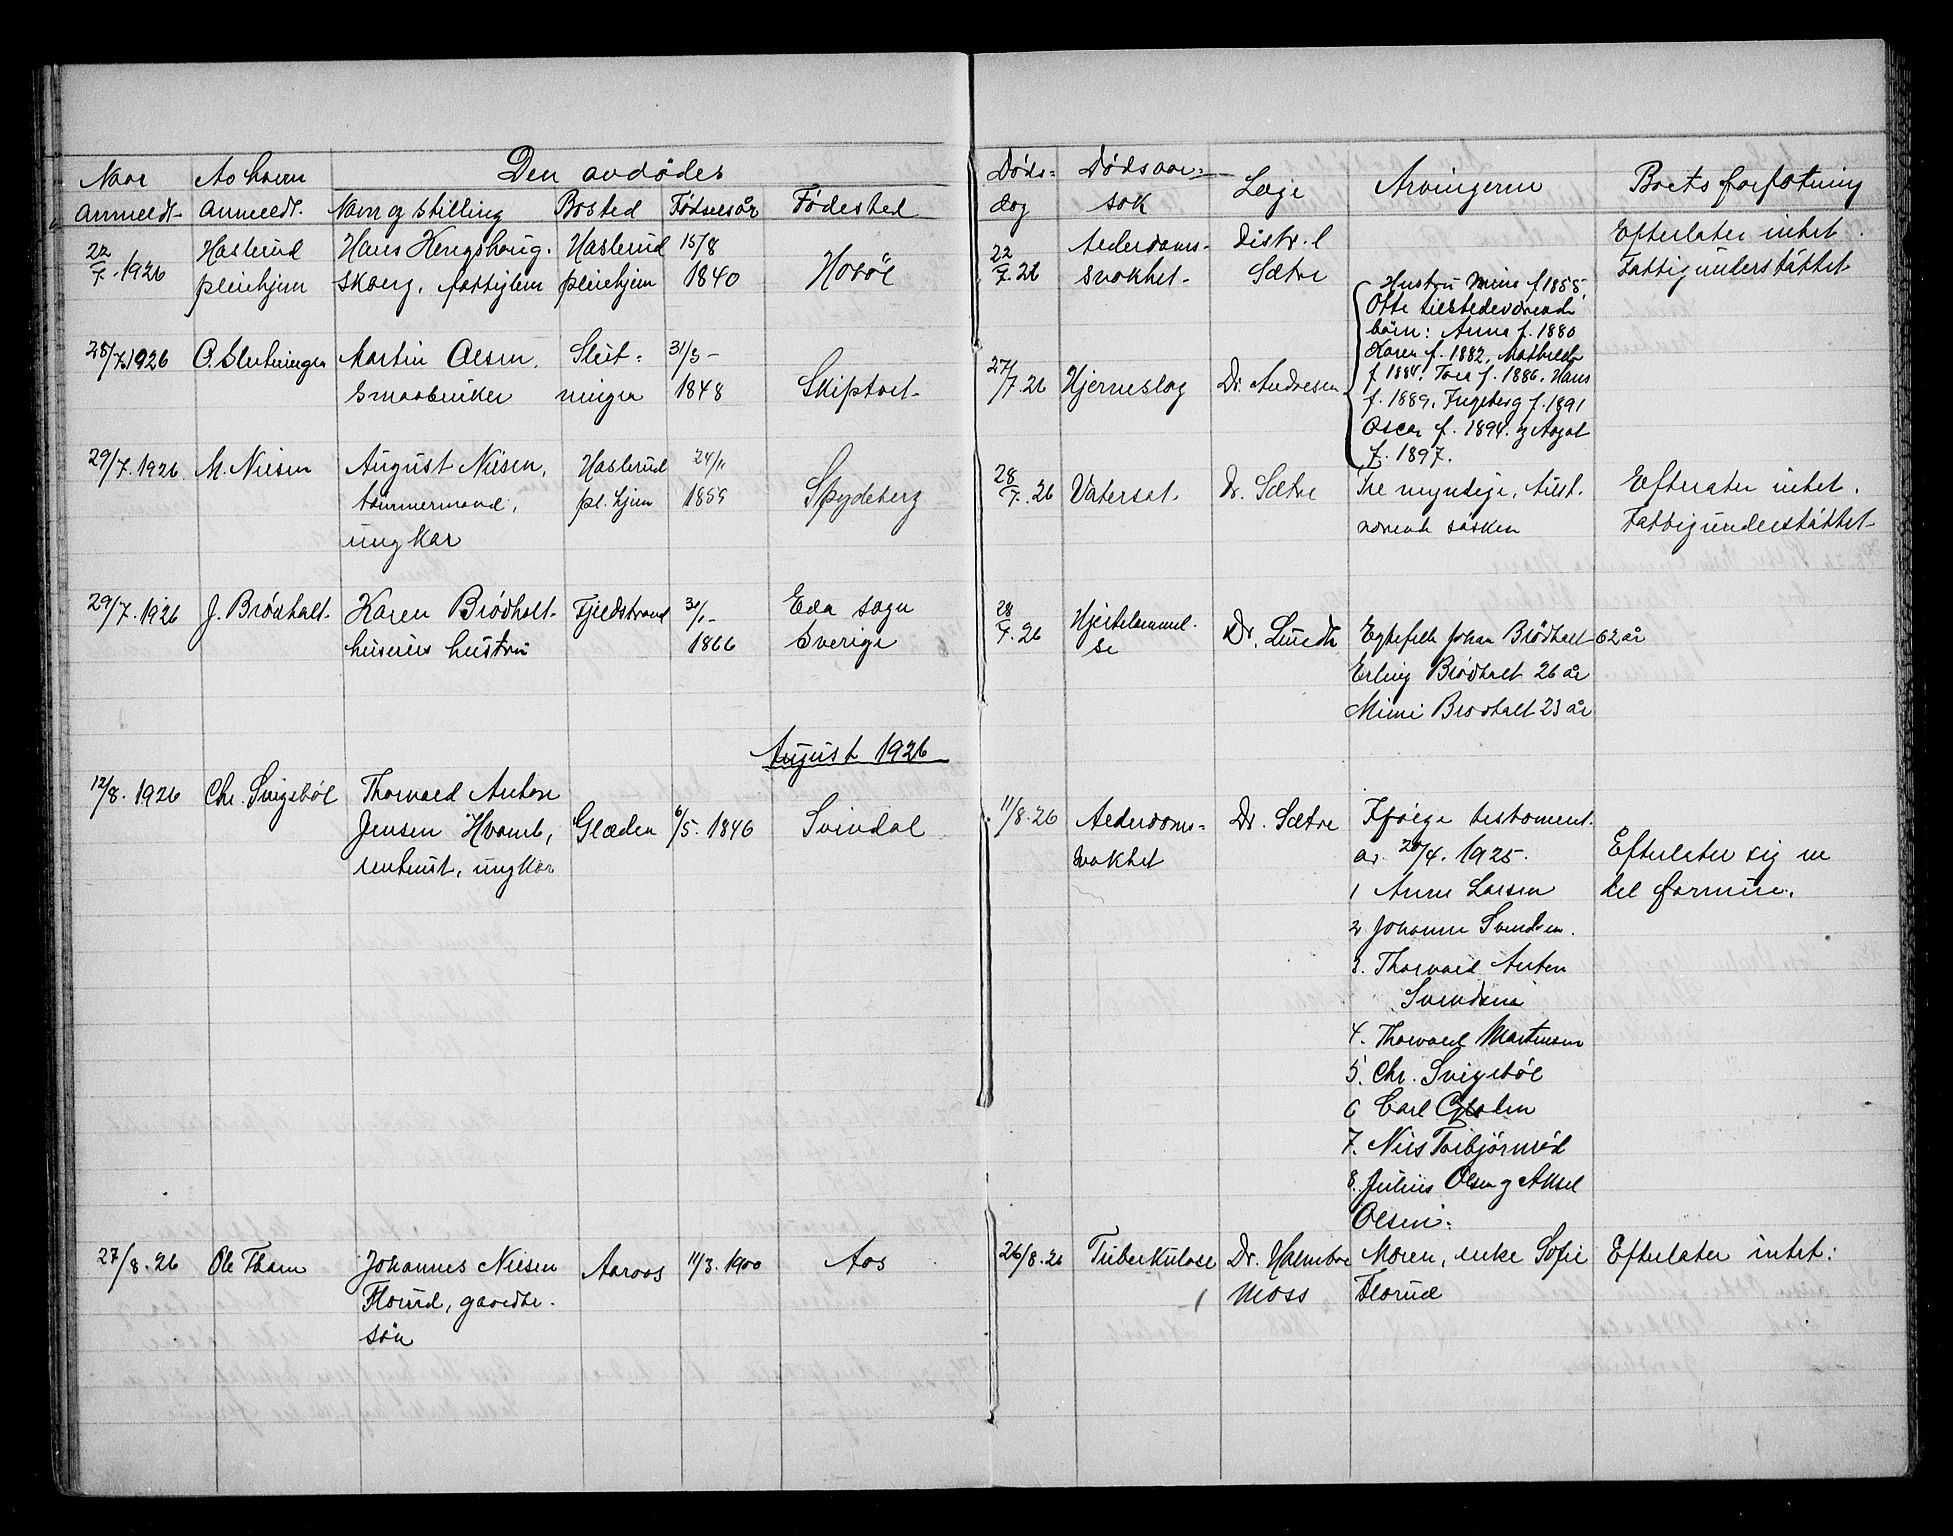 Naar Av hvem Den avdødes
anmeldt. anmeldt. Navn og stilling Bosted Fødselsår Fødested
Døds- Dødsaar- Læge Arvingerne Boets forfatning
dag sak
22/7.1926 Haslerud Hans Haslerud 15/8 Hobøl
pleiehjem Skberg, fattiglem pleiehjem 1840
22/7.26 Alderdoms- Distr.l Efterlater intet.
svakhet. Sætre Fattigunderstøttet
28/7.1926 O. Slutningen Martin Olsen, Slut- 31/3- Skiptvet
smaabruker ningen 1848
27/7 26 Hjerneslag Dr. Andresen
Hustru Mina f. 1855
Otte tilstedeværende
børn: Anna f. 1880
Karen f. 1882, Mathilde
f. 1884, Tora f. 1886, Hans
f. 1889, Ingeborg f. 1891
Oscar f. 1894. og Aagot
f. 1897.
29/7.1926 M. Nilsen August Nilsen, Haslerud 24/11 Spydeberg
tømmermand, pl. hjem 1855
ungkar
28/7.26 Vatersot. Dr. Sætre Tre myndige, tilst. Efterlater intet.
værende søsken Fattigunderstøttet
29/7.1926 J. Brødholt. Karen Brødholt- Fjeldstrand 1866 Eda sogn
huseiers hustru Sverige
28/7.26 Hjertelammel- Dr. Lundh Egtefelle Johan Brødholt 62 år
se Erling Brødholt 26 år
Mimi Brødholt 23 år
August 1926
12/8.1926 Chr. Svigebøl Thorvald Anton
Jensen Hvamb, Glæden 6/5. 1846 Svindal
rentenist, ungkar
11/8.26 Alderdoms- Dr. Sætre Ifølge testament.
svakhet av 4. 1925. Efterlater sig en
1 Anne Larsen del formue.
2 Johanne Svendsen.
3. Thorvald Anton
Svendsen
4. Thorvald Martinsen
5. Chr. Svigebøl
6 Carl
7. Nils Torbjørnrød
8. Julius Olsen og Aksel
Olsen.
27/8.26 Ole Thom Johannes Nilsen Aaraas 11/3.1900 Aas
Florud, gaardbr.
søn
26/8.26 Tuberkulose Dr. Halmboe Moren, enke Sofie Efterlater intet.
Moss Florud